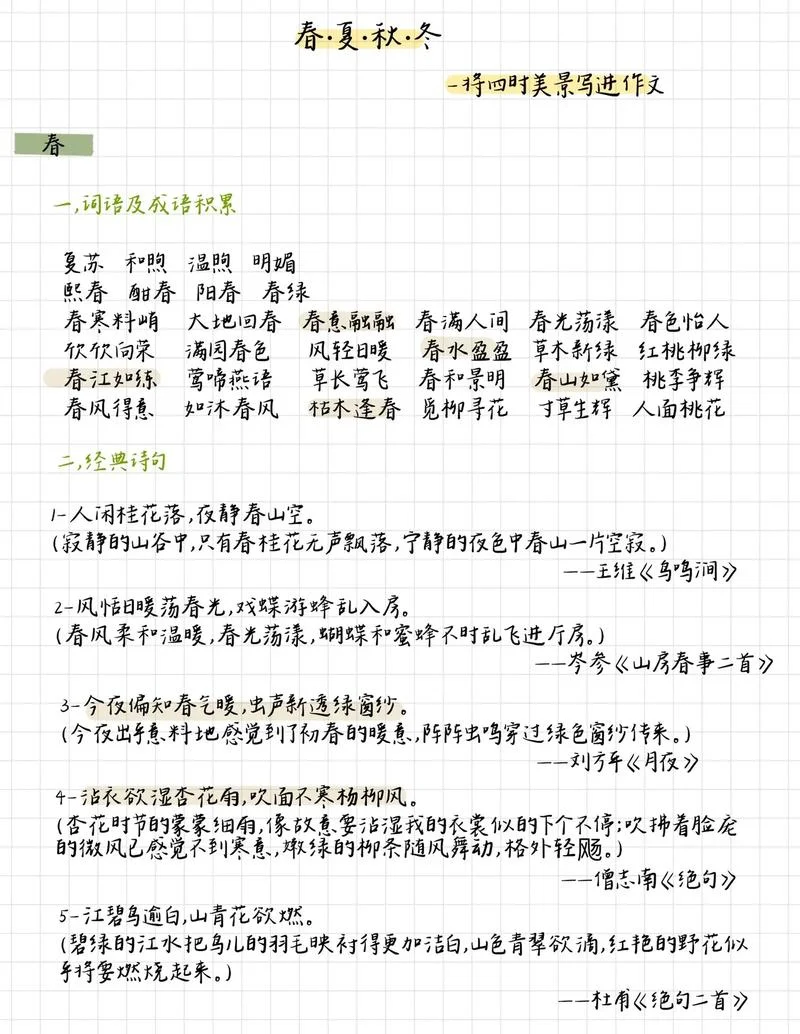 春·夏·秋·冬
-将四时美景写进作文
春
一,词语及成语积累
复苏 和煦 温煦 明媚
熙春 酣春 阳春 春绿
春寒料峭 大地回春 春意融融 春满人间 春光荡漾 春色怡人
欣欣向荣 满园春色 风轻日暖 春水盈盈 草木新绿 红桃柳绿
春江如练 莺啼燕语 草长莺飞 春和景明 春山如黛 桃李争辉
春风得意 如沐春风 枯木逢春 觅柳寻花 寸草生辉 人面桃花
二,经典诗句
1-人闲桂花落,夜静春山空。
(寂静的山谷中,只有春桂花无声飘落,宁静的夜色中春山一片空寂。)
——王维《鸟鸣涧》
2-风恬日暖荡春光,戏蝶游蜂乱入房。
(春风柔和温暖,春光荡漾,蝴蝶和蜜蜂不时乱飞进厅房。)
——岑参《山房春事二首》
3-今夜偏知春气暖,虫声新透绿窗纱。
(今夜出乎意料地感觉到了初春的暖意,阵阵虫鸣穿过绿色窗纱传来。)
——刘方平《月夜》
4-沾衣欲湿杏花雨,吹面不寒杨柳风。
(杏花时节的蒙蒙细雨,像故意要沾湿我的衣裳似的下个不停;吹拂着脸庞
的微风已感觉不到寒意,嫩绿的柳条随风舞动,格外轻飏。)
——僧志南《绝句》
5-江碧鸟逾白,山青花欲燃。
(碧绿的江水把鸟儿的羽毛映衬得更加洁白,山色青翠欲滴,红艳的野花似
乎将要燃烧起来。)
——杜甫《绝句二首》